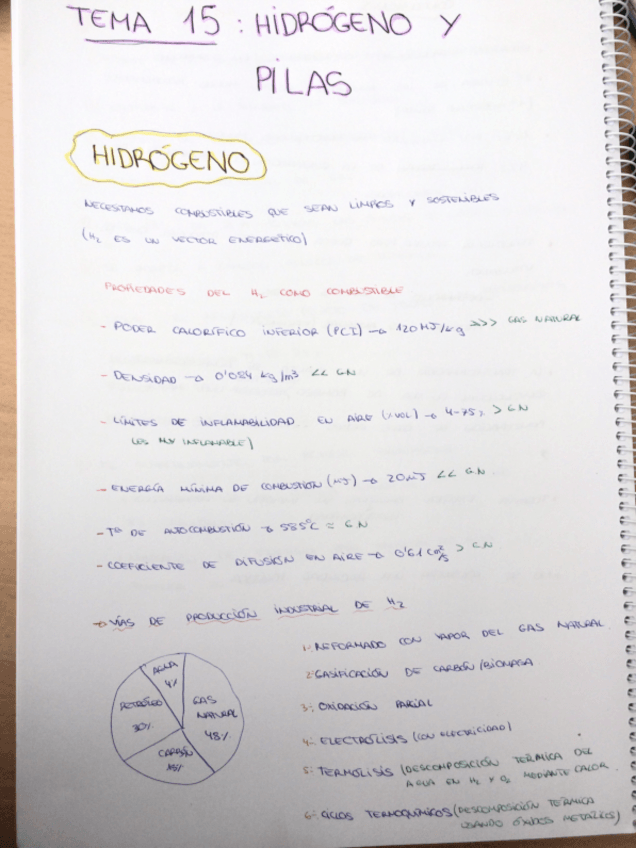 TEMA 15: HIDRÓGENO Y
PILAS
HIDRÓGENO
NECESITAMOS COMBUSTIBLES QUE SEAN LIMPIOS Y SOSTENIBLES
(H₂ ES UN VECTOR ENERGÉTICO)
PROPIEDADES DEL H₂ COMO COMBUSTIBLE
- PODER CALORÍFICO INFERIOR (PCI) → 120 MJ/kg >>> GAS NATURAL
- DENSIDAD → 0'084 kg/m³ << GN
- LÍMITES DE INFLAMABILIDAD EN AIRE (% VOL) → 4-75% > GN
(ES MUY INFLAMABLE)
- ENERGÍA MÍNIMA DE COMBUSTIÓN (MJ) → 20 MJ << GN
- Tª DE AUTOCOMBUSTIÓN → 585°C ≈ GN
- COEFICIENTE DE DIFUSIÓN EN AIRE → 0'61 cm²/s > GN
→ VÍAS DE PRODUCCIÓN INDUSTRIAL DE H₂
AGUA
4%
PETRÓLEO
30%
GAS
NATURAL
48%
CARBÓN
18%
1: REFORMADO CON VAPOR DEL GAS NATURAL
2: GASIFICACIÓN DE CARBÓN/BIOMASA
3: OXIDACIÓN PARCIAL
4: ELECTRÓLISIS (CON ELECTRICIDAD)
5: TERMÓLISIS (DESCOMPOSICIÓN TÉRMICA DEL
AGUA EN H₂ Y O₂ MEDIANTE CALOR
6: CICLOS TERMOQUÍMICOS (DESCOMPOSICIÓN TÉRMICA
USANDO ÓXIDOS METÁLICOS)